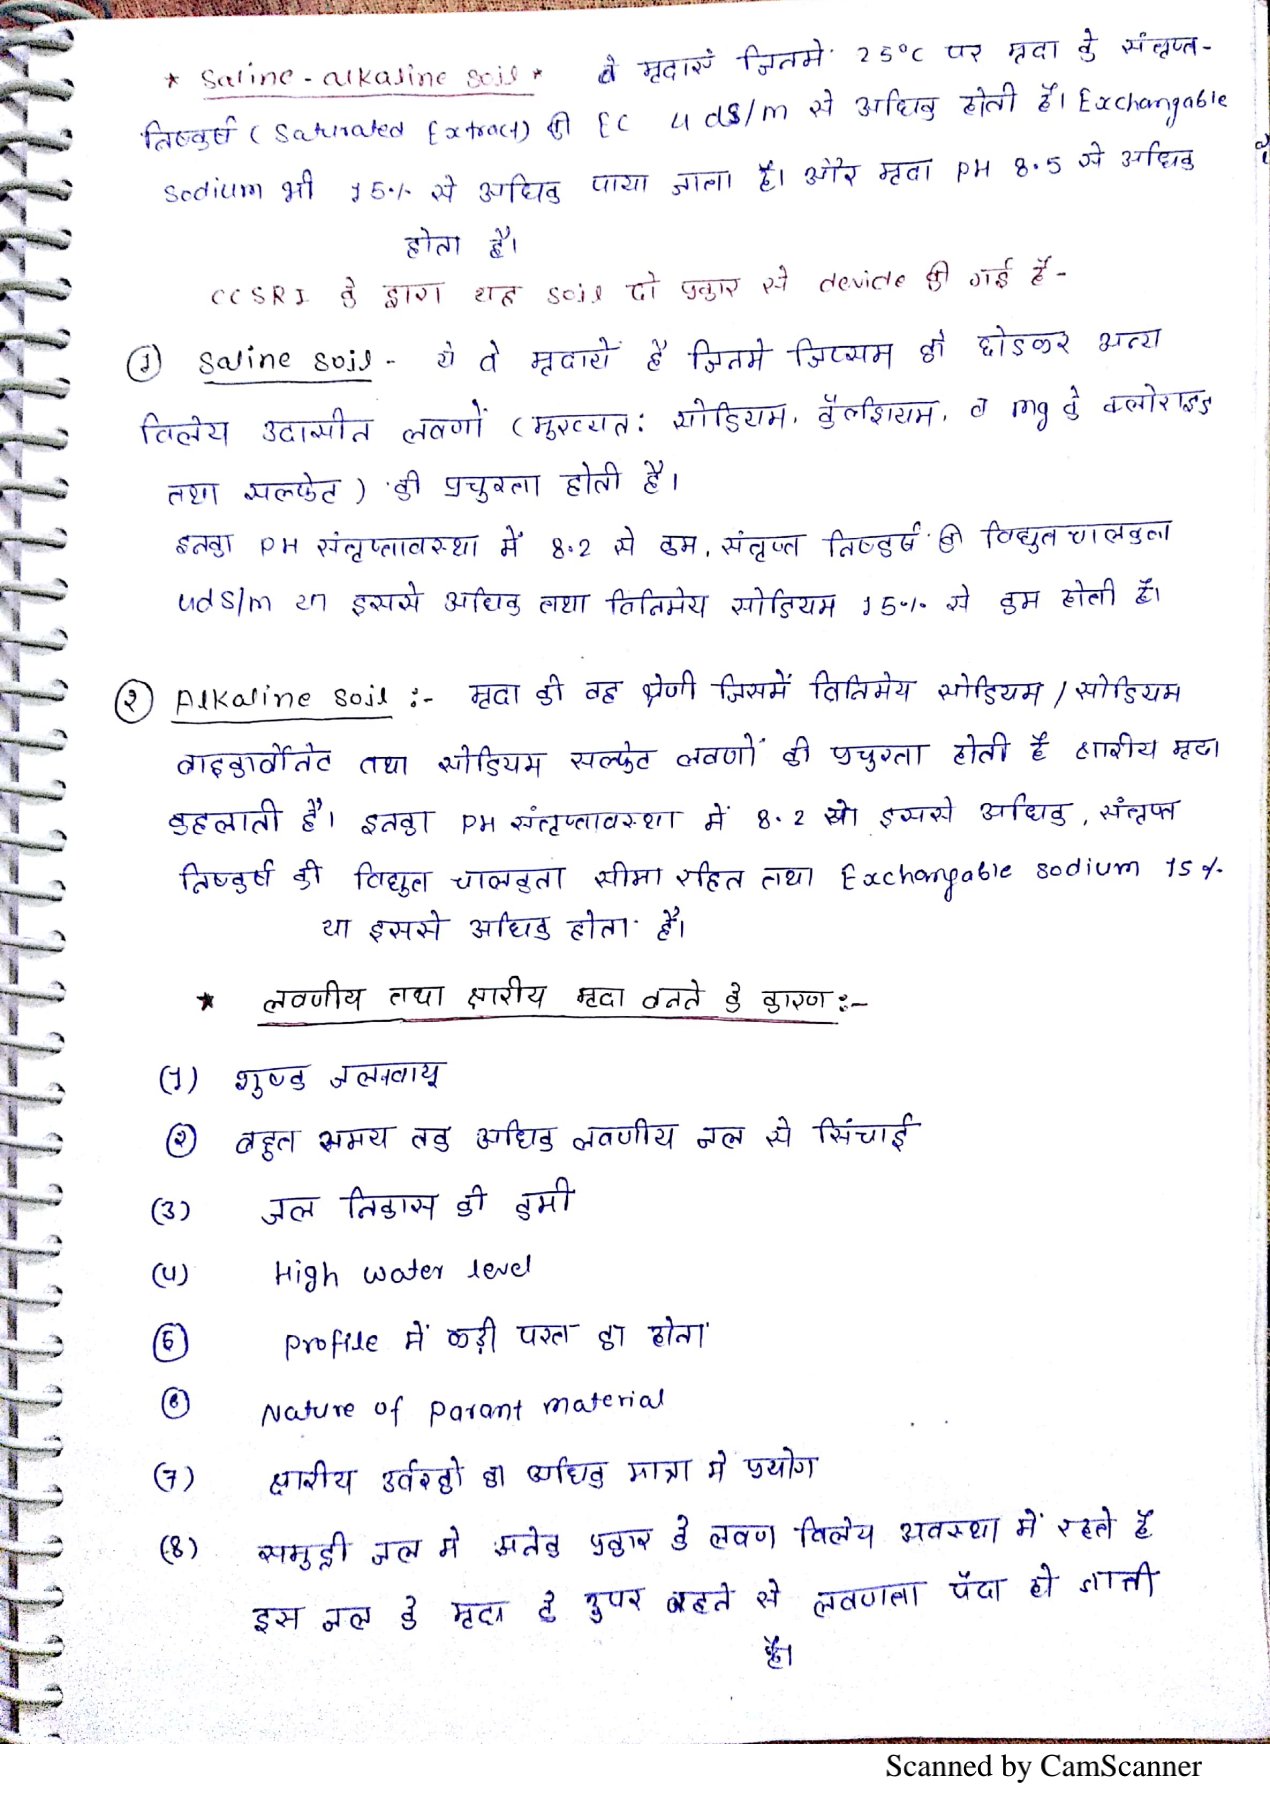 * Saline-alkaline soil * वे मृदाएं जिनमे 25°C पर मृदा के संतृप्त-
निष्कर्ष (Saturated Extract) की EC 4 dS/m से अधिक होती है। Exchangable
Sodium भी 15% से अधिक पाया जाता है। और मृदा PH 8.5 से अधिक
होता है।
CCSRI के द्वारा यह soil दो प्रकार से devide की गई है -
(1) Saline soil - ये वे मृदायें है जिनमे जिप्सम को छोडकर अन्य
विलेय उदासीन लवणों (मुख्यत: सोडियम, कैल्शियम, व mg के क्लोराइड
तथा सल्फेट) की प्रचुरता होती है।
इनका PH संतृप्तावस्था में 8.2 से कम, संतृप्त निष्कर्ष की विद्युत चालकता
4dS/m या इससे अधिक तथा विनिमेय सोडियम 15% से कम होती है।
(2) Alkaline soil :- मृदा की वह श्रेणी जिसमें विनिमेय सोडियम / सोडियम
बाइकार्बोनेट तथा सोडियम सल्फेट लवणों की प्रचुरता होती है क्षारीय मृदा
कहलाती है। इनका PH संतृप्तावस्था में 8.2 या इससे अधिक, संतृप्त
निष्कर्ष की विद्युत चालकता सीमा रहित तथा Exchangable sodium 15%
या इससे अधिक होता है।
* लवणीय तथा क्षारीय मृदा बनने के कारण :-
(1) शुष्क जलवायु
(2) बहुत समय तक अधिक लवणीय जल से सिंचाई
(3) जल निकास की कमी
(4) High water level
(5) Profile में कड़ी परत का होना
(6) Nature of Parant material
(7) क्षारीय उर्वरकों का अधिक मात्रा मे प्रयोग
(8) समुद्री जल मे अनेक प्रकार के लवण विलेय अवस्था में रहते है
इस जल के मृदा के उपर बहने से लवणता पैदा हो जाती
है।
Scanned by CamScanner